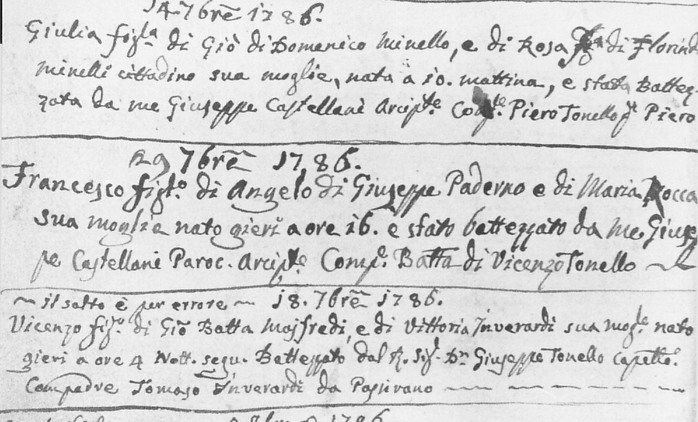 14. 7brẽ 1786.
Giulia figla di Giõ di Domenico Minello, e di Rosa figa di Florind
Minelli cittadino sua moglie, nata a 10. mattina, e stata Battez-
zata da me Giuseppe Castellani Arcipte. Compe. Piero Tonello qt. Piero
29 7brẽ 1786.
Francesco figlo. di Angelo di Giuseppe Paderno e di Maria Rocca
sua moglie nato gieri a ore 16. e stato battezzato da me Giusep
pe Castellani Paroc. Arcipte. Comp. Batta di Vicenzo Tonello
~ il sotto è per errore ~ 18. 7brẽ 1786.
Vicenzo figo. di Giõ Batta Majfredi, e di Vittoria Inverardi sua moge. nato
gieri a ore 4 Nott. segu. Battezzato dal R. Sigr. Dn Giuseppe Tonello Capello.
Compadre Tomaso Inverardi da Passirano
7brẽ 1786